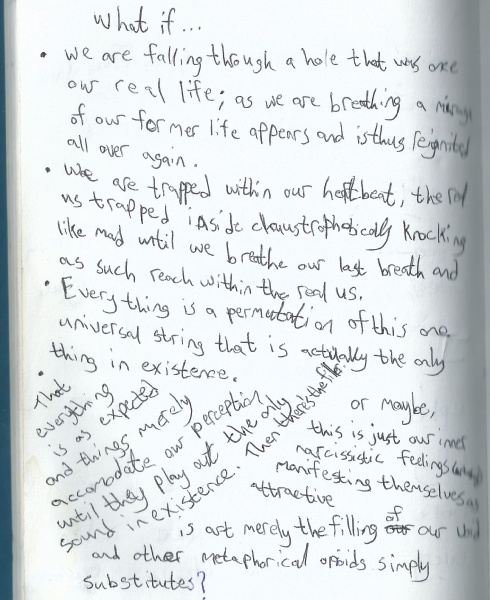 What if...
• we are falling through a hole that was once
our real life; as we are breathing a mirage
of our former life appears and is thus reignited
all over again.
• We are trapped within our heartbeat, the real
us trapped inside claustrophobically knocking
like mad until we breathe our last breath and
as such reach within the real us.
• Everything is a permutation of this one
universal string that is actually the only
thing in existence.
• That
everything
is as expected
and things merely
accomodate our perception
until they play out the only
sound in existence. Then there's the filler
or maybe,
this is just our inner
narcissistic feelings
manifesting themselves as
attractive
is art merely the filling of our void
and other metaphorical opioids simply
substitutes?